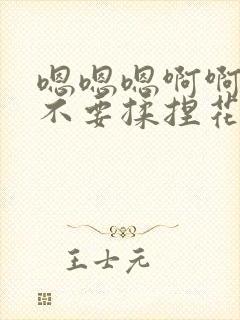 嗯嗯嗯啊啊
不要揉捏花
王士元